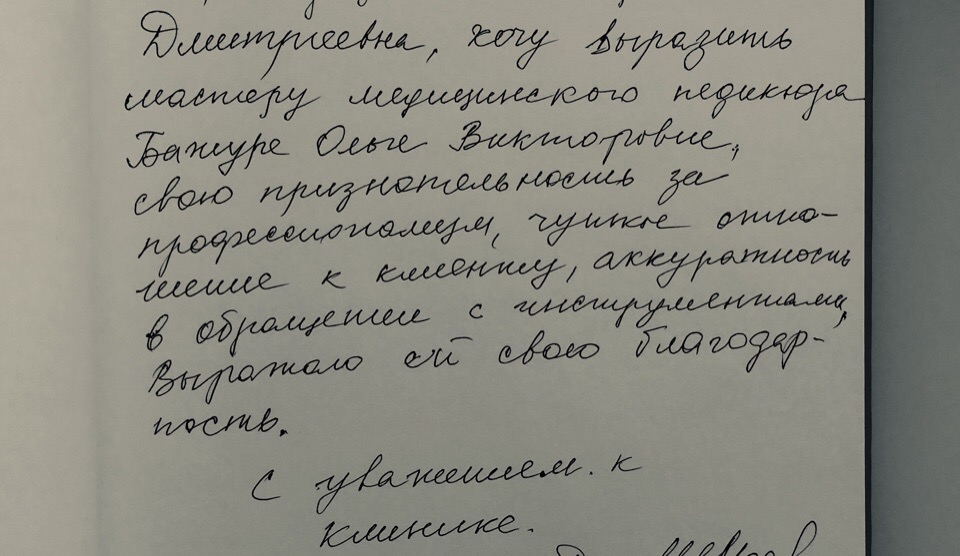 Дмитриевна, хочу выразить
мастеру медицинского педикюра
Бажуре Ольге Викторовне,
свою признательность за
профессионализм, чуткое отно-
шение к клиенту, аккуратность
в обращении с инструментами,
Выражаю ей свою благодар-
ность.
С уважением к
клинике.